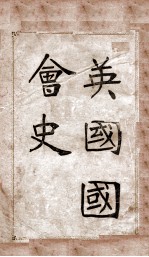 英國國
會史